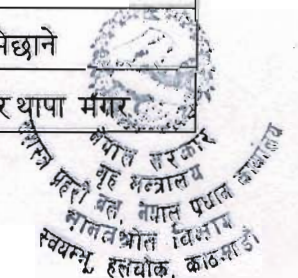 मेछाने
र थापा मगर
नेपाल सरकार
गृह मन्त्रालय
सशस्त्र प्रहरी बल, नेपाल प्रधान कार्यालय
मानवश्रोत विभाग
स्वयम्भू, हलचोक, काठमाडौं